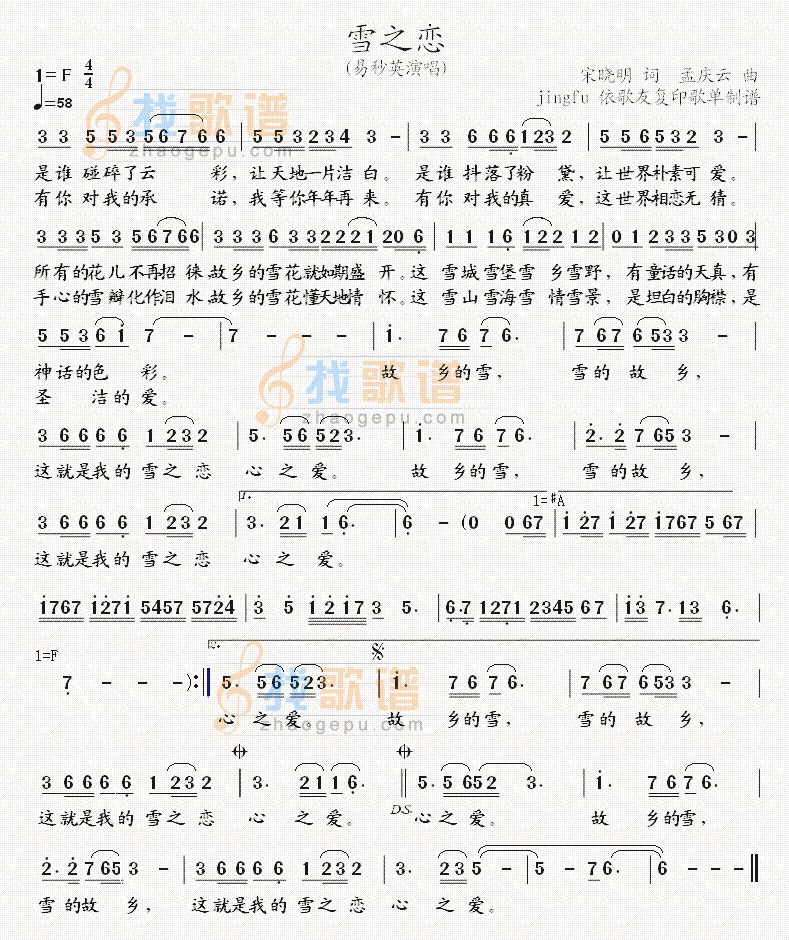 雪之恋
(易秒英演唱)
1=F 4/4
♩=58
宋晓明 词 孟庆云 曲
jingfu 依歌友复印歌单制谱
找歌谱
zhaogepu.com
3 3 5 5 3 5 6 7 6 6 | 5 5 3 2 3 4 3 - | 3 3 6 6 6 1 2 3 2 | 5 5 6 5 3 2 3 - |
是谁 碰碎了云 彩,让天地一片洁 白。是谁 抖落了粉 黛,让世界朴素可 爱。
有你 对我的承 诺,我等你年年再 来。有你 对我的真 爱,这世界相恋无 猜。
3 3 3 5 3 5 6 7 6 6 | 3 3 3 6 3 3 2 2 2 1 2 0 6 | 1 1 1 6 1 2 2 2 1 2 | 0 1 2 3 3 5 3 0 3 |
所有的花儿不再招 徕,故乡的雪花就如期盛 开。这 雪城雪堡雪 乡雪野,有童话的天真,有
手心的雪瓣化作泪 水,故乡的雪花懂天地情 怀。这 雪山雪海雪 情雪景,是坦白的胸襟,是
5 5 3 6 1 7 - | 7 - - - | 1. 7 6 7 6. | 7 6 7 6 5 3 3 - |
神话的色 彩。 故 乡的雪, 雪的 故 乡,
圣 洁的爱。
找歌谱
zhaogepu.com
3 6 6 6 6 6 1 2 3 2 | 5. 5 6 5 2 3. | 1. 7 6 7 6. | 2. 2 7 6 5 3 - |
这就是我的 雪之 恋 心 之 爱。 故 乡的雪, 雪的故 乡,
1. 1=#A
3 6 6 6 6 6 1 2 3 2 | 3. 2 1 1 6. | 6 - (0 0 6 7 | 1 2 7 1 2 7 1 7 6 7 5 6 7 |
这就是我的 雪之 恋 心 之 爱。
1 7 6 7 1 2 7 1 5 4 5 7 5 7 2 4 | 3 5 1 2 1 7 3 5. | 6. 7 1 2 7 1 2 3 4 5 6 7 | 1 3 7. 1 3 6. |
1=F 2.
7 - - - ) :| 5. 5 6 5 2 3. | 1. 7 6 7 6. | 7 6 7 6 5 3 3 - |
心 之 爱。 故 乡的雪, 雪的 故 乡,
找歌谱
zhaogepu.com
3 6 6 6 6 6 1 2 3 2 | 3. 2 1 1 6. || 5. 5 6 5 2 3. | 1. 7 6 7 6. |
D.S.
这就是我的 雪之 恋 心 之 爱。 心之 爱。 故 乡的雪,
2. 2 7 6 5 3 - | 3 6 6 6 6 6 1 2 3 2 | 3. 2 3 5 - | 5 - 7 6. | 6 - - - ||
雪 的故 乡, 这就是我的雪之 恋 心 之 爱。